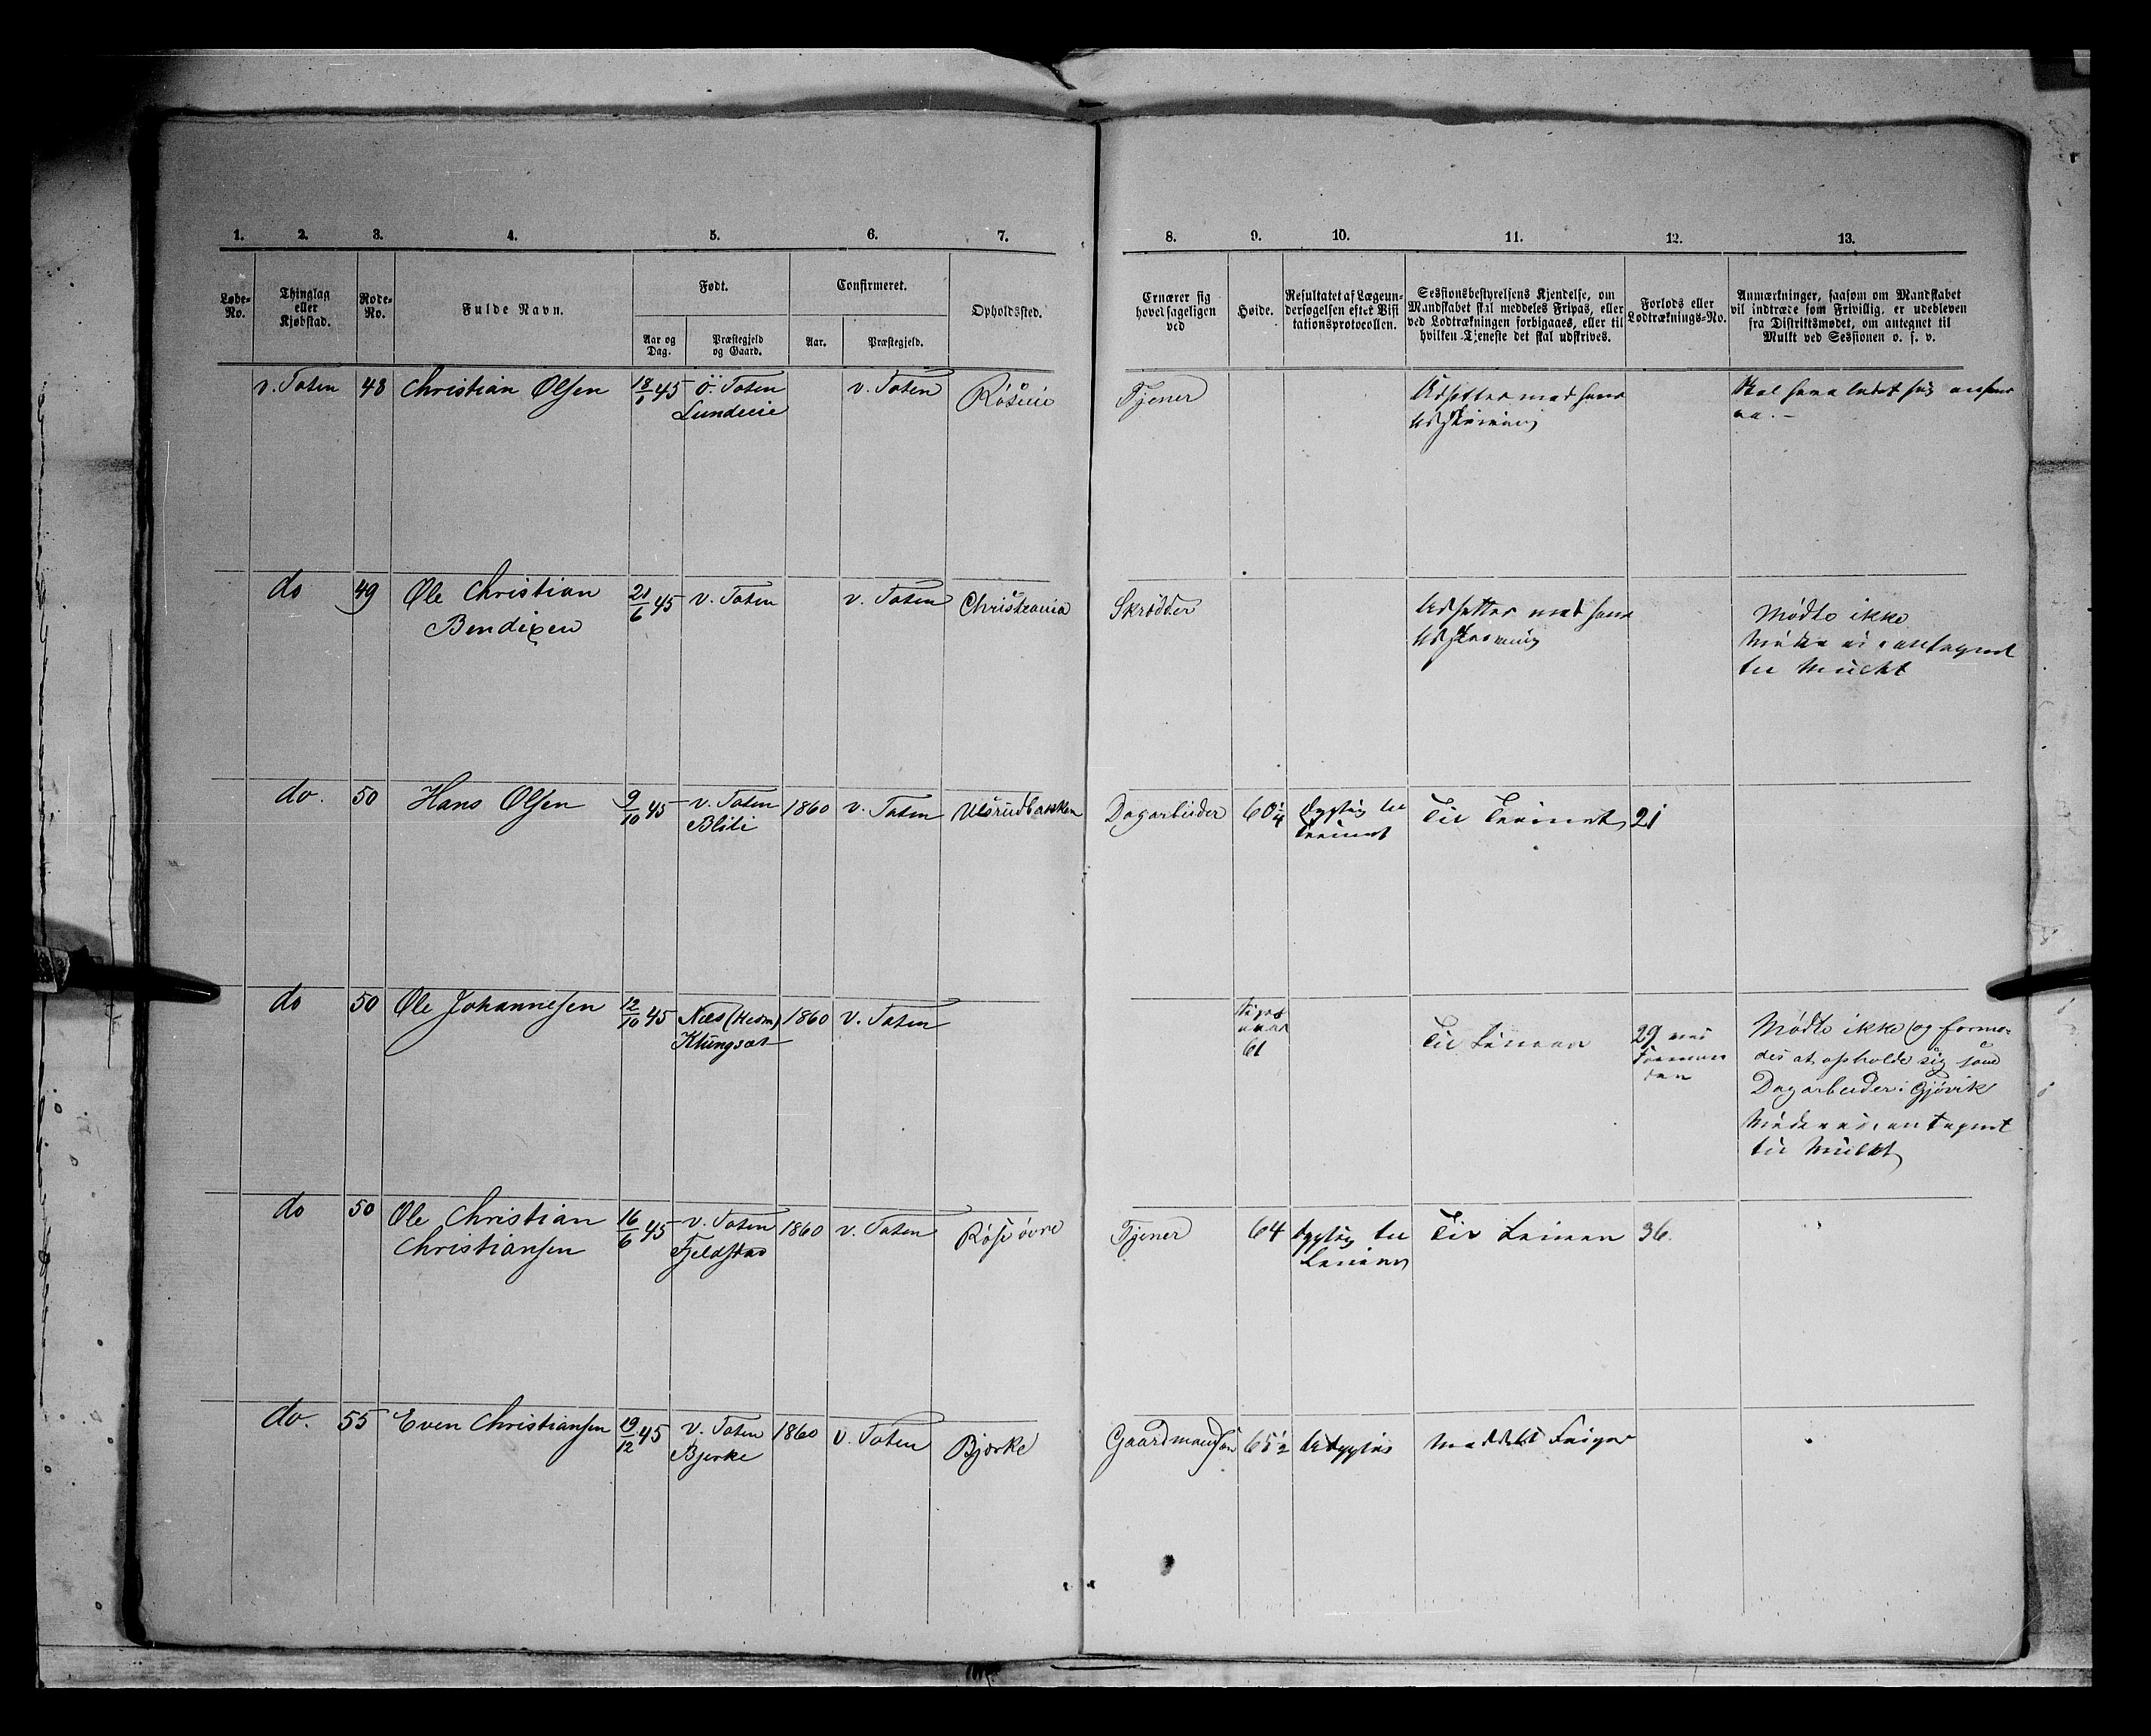 1. 2. 3. 4. 5. 6. 7. 8. 9. 10. 11. 12. 13.
Løbe-No.
Thinglag eller Kjøbstad.
Rode-No.
Fulde Navn.
Født.
Aar og Dag.
Præstegjeld og Gaard.
Confirmeret.
Aar.
Præstegjeld.
Opholdssted.
Ernærer sig hovedsageligen ved
Høide.
Resultatet af Lægeundersøgelsen efter Visitationsprotocollen.
Sessionsbestyrelsens Kjendelse, om Mandskabet skal meddeles Fripas, eller ved Lodtrækningen forbigaaes, eller til hvilken Tjeneste det skal udskrives.
Forlods eller Lodtræknings-No.
Anmærkninger, saasom om Mandskabet vil indtræde som Frivillig, er udebleven fra Distriktsmødet, om antegnet til Mulkt ved Sessionen o. s. v.
v. Toten 48 Christian Olsen 18/1 45 Ö. Toten v. Toten Röseie Tjener Udsettes med hans
Lundeeie Udskrivning
do 49 Ole Christian 21/6 45 v. Toten v. Toten Christiania Skrædder Udsettes med hans Mødte ikke
Bendixen Udskrivning
antegnet
til Mulkt
do. 50 Hans Olsen 9/10 45 v. Toten 1860 v. Toten Ulsrudbakken Dagarbeider 60 1/4 Dygtig til Til Trainet 21
Blili Trainet
do 50 Ole Johannesen 12/10 45 Næs (Hedm) 1860 v. Toten 61 Til Linien 29 Mødte ikke og formo-
Klungsæt des at opholde sig som
Dagarbeider i Gjøvik
Møder ei, antegnet
til Mulkt
do 50 Ole Christian 16/6 45 v. Toten 1860 v. Toten Røse øvre Tjener 64 Dygtig til Til Linien 36.
Christiansen Fjeldstad Linien
do. 55 Even Christiansen 19/12 45 v. Toten 1860 v. Toten Bjørke Gaardmandsøn 65 1/2 Udygtig Meddelt Fripas
Bjerke